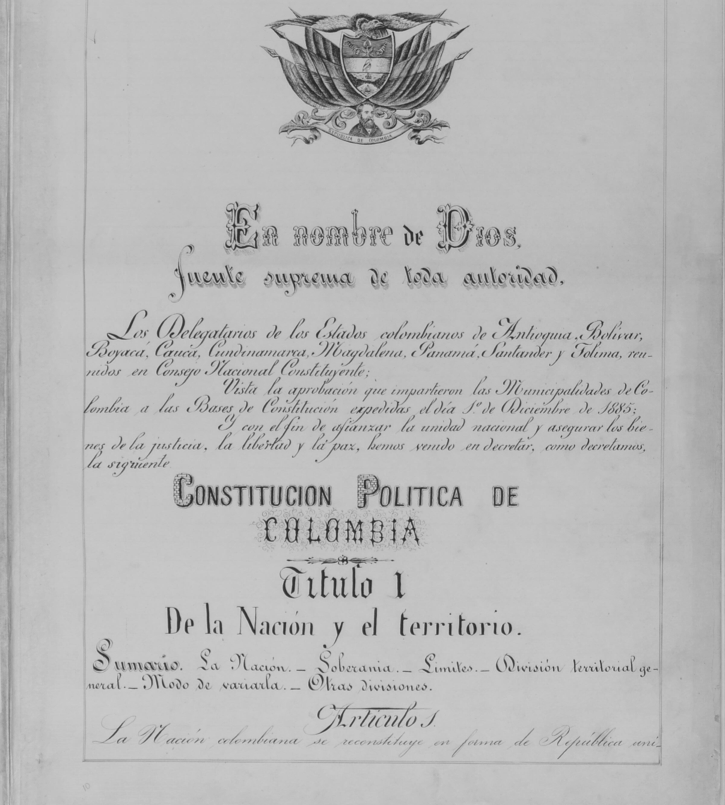 En nombre de Dios,
fuente suprema de toda autoridad,
Los Delegatarios de los Estados colombianos de Antioquia, Bolívar,
Boyacá, Cauca, Cundinamarca, Magdalena, Panamá, Santander y Tolima, reu-
nidos en Consejo Nacional Constituyente;
Vista la aprobación que impartieron las Municipalidades de Co-
lombia a las Bases de Constitución expedidas el día 1º de Diciembre de 1885;
Y con el fin de afianzar la unidad nacional y asegurar los bie-
nes de la justicia, la libertad y la paz, hemos venido en decretar, como decretamos,
la siguiente
CONSTITUCION POLITICA DE
COLOMBIA
Titulo I
De la Nación y el territorio.
Sumario. La Nación. – Soberanía. – Límites. – División territorial ge-
neral. – Modo de variarla. – Otras divisiones.
Artículo 1.
La Nación colombiana se reconstituye en forma de República uni-